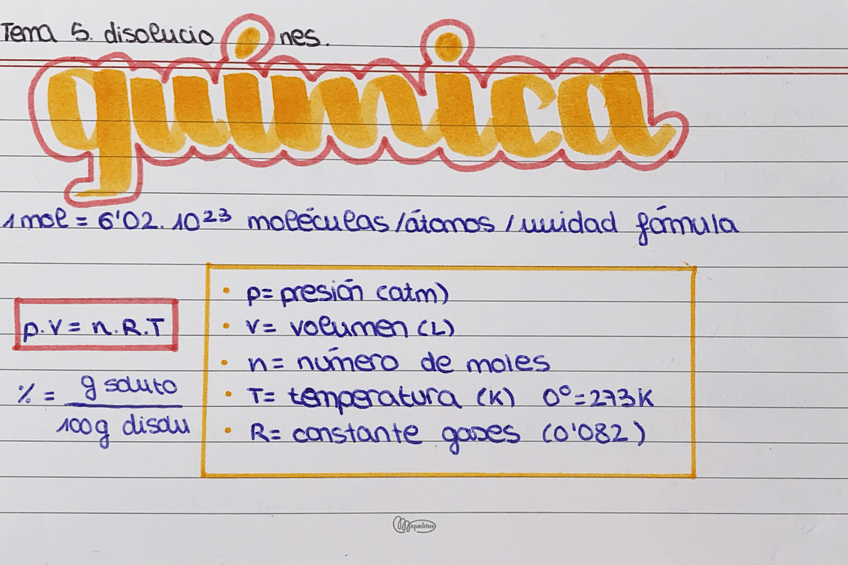 Tema 5. disoluciones.
química
1 mol = 6'02.10²³ moléculas/átomos/unidad fórmula
p.V = n.R.T
% = g soluto
100g disolu
• p = presión (atm)
• V = volumen (L)
• n = número de moles
• T = temperatura (K) 0º = 273K
• R = constante gases (0'082)